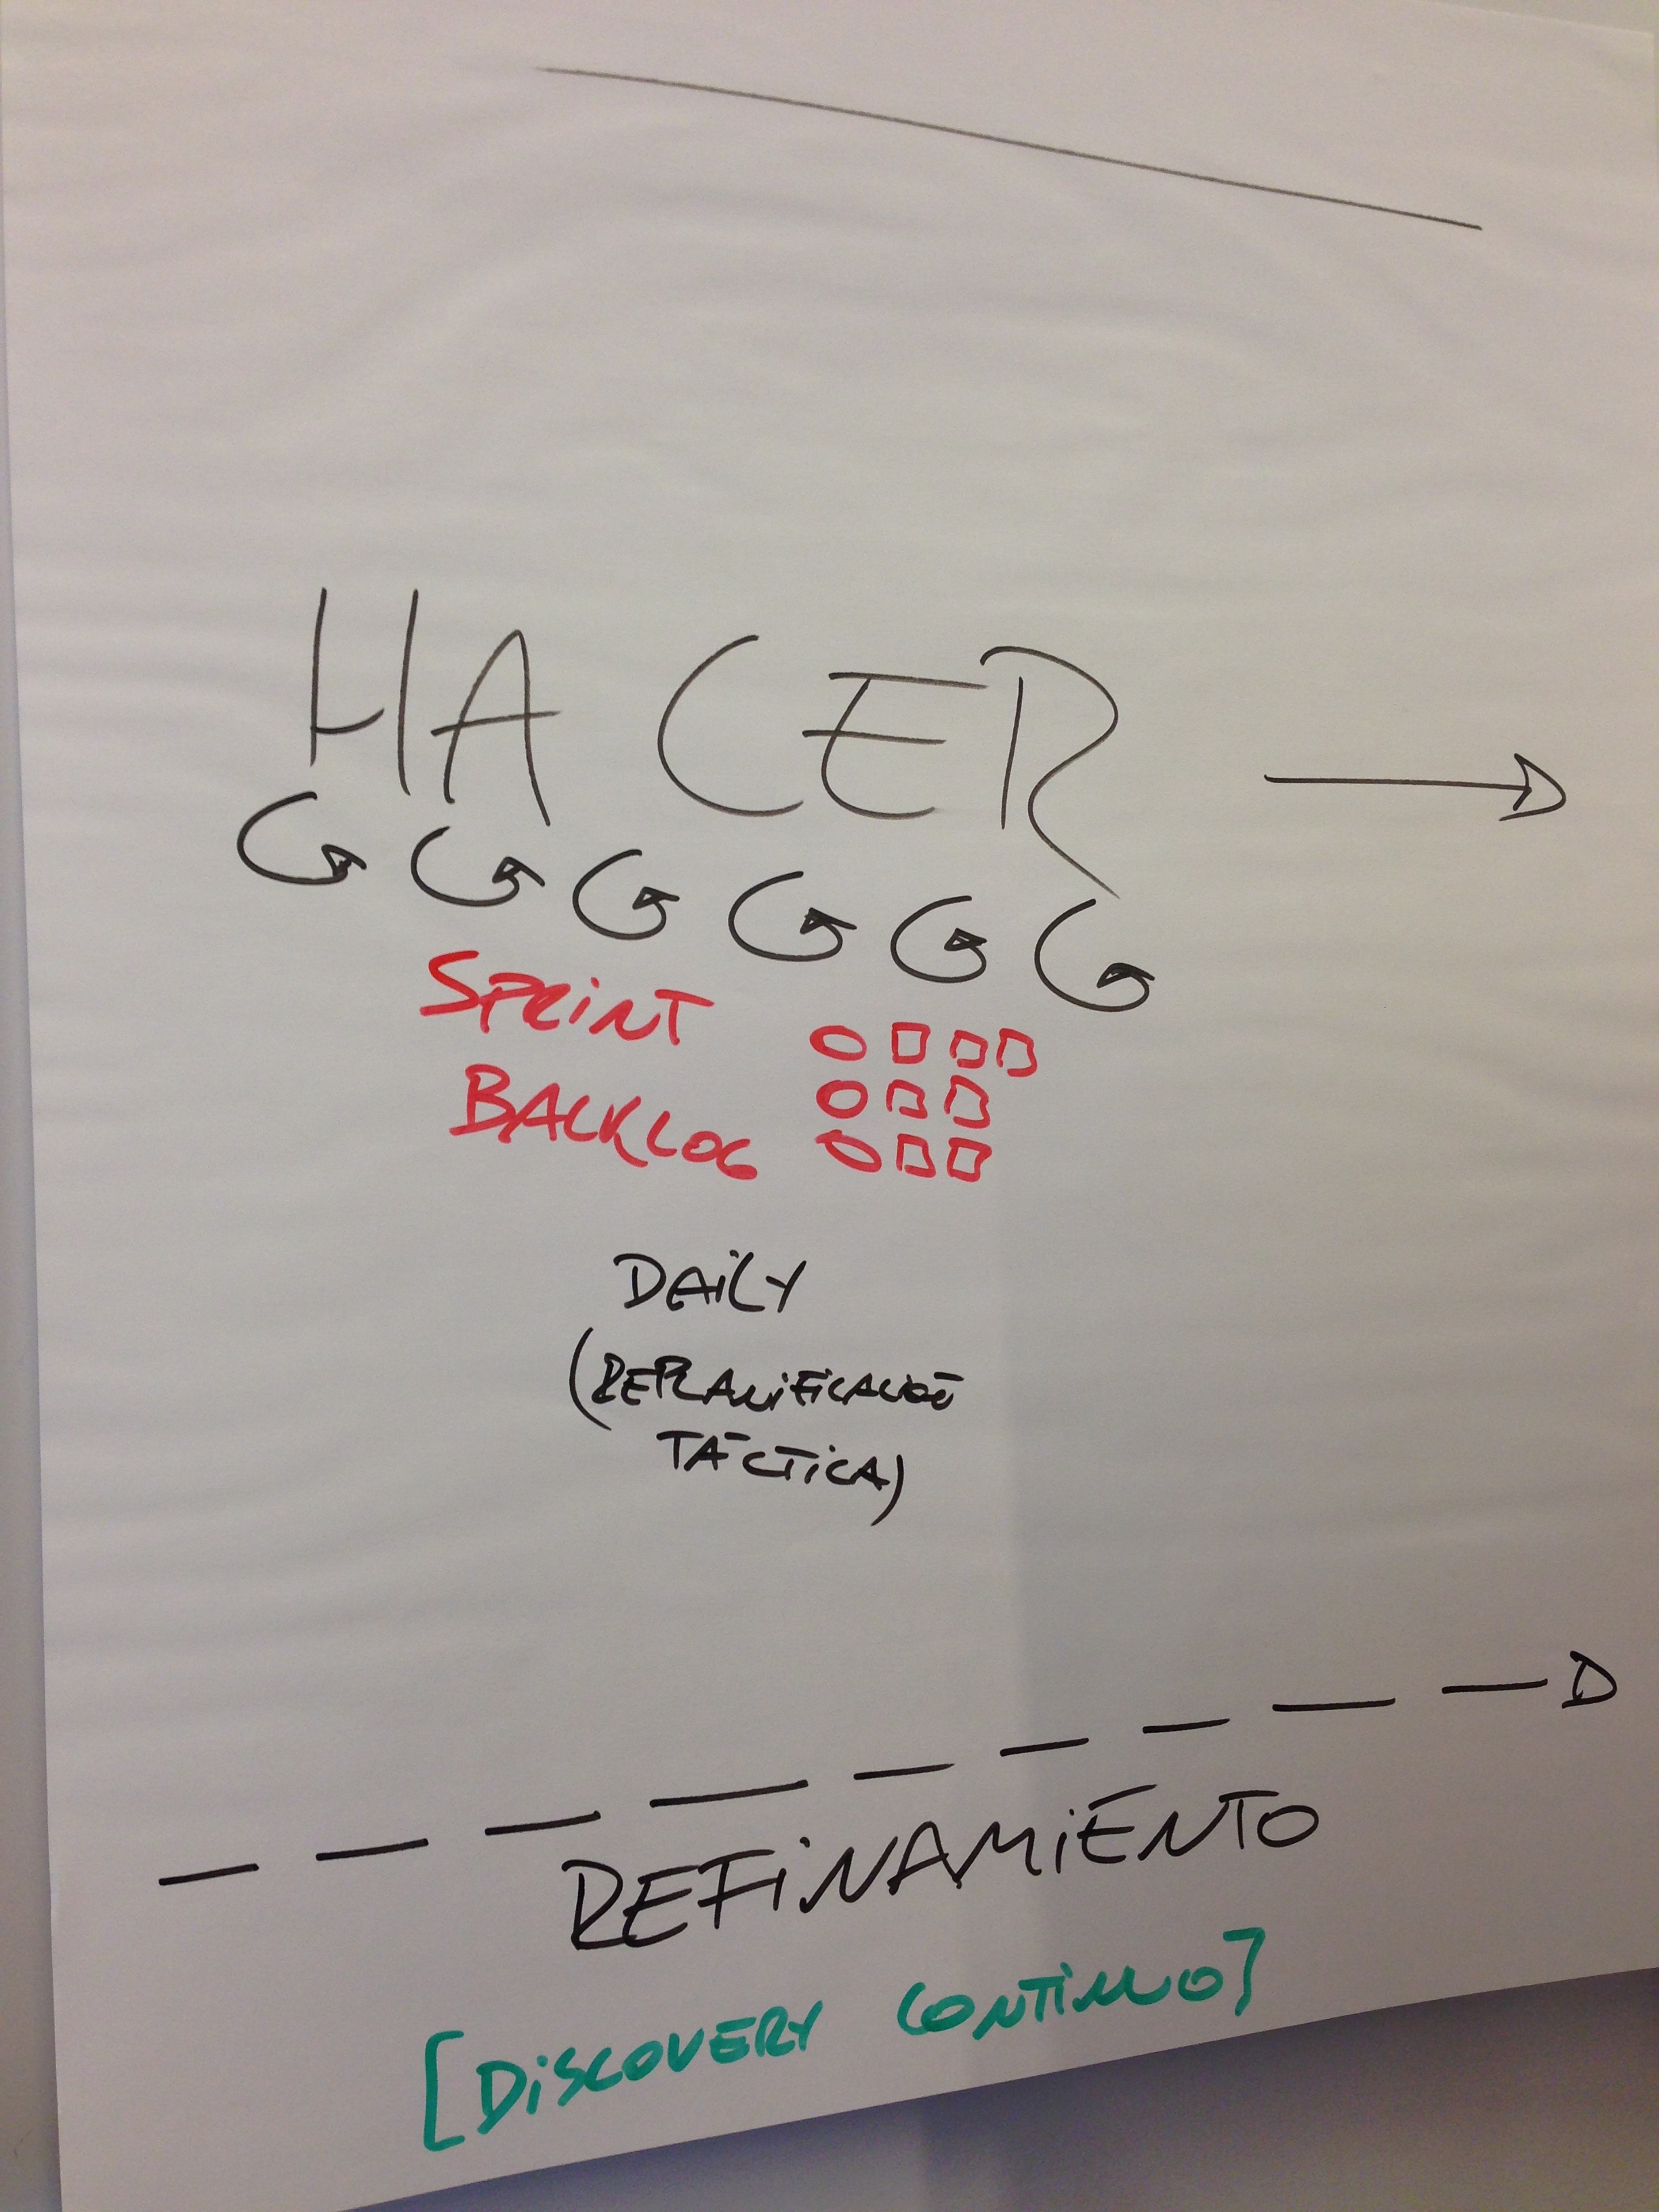 HACER
SPRINT
BACKLOG
DAILY
(REPLANIFICACIÓN
TÁCTICA)
REFINAMIENTO
[DISCOVERY CONTINUO]